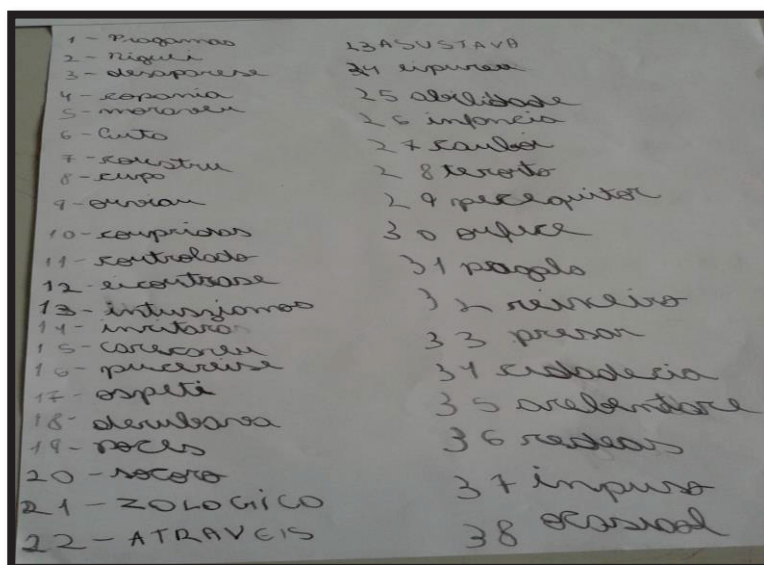 1 - Progamas
2 - Niguli
3 - desaparese
4 - copania
5 - moraveu
6 - Curto
7 - coustru
8 - cupo
9 - ouviau
10 - coupridas
11 - coutrolado
12 - eicoutrase
13 - intusziamos
14 - invitara
15 - carecoreu
16 - pucereise
17 - ospeti
18 - derubava
19 - poces
20 - socoro
21 - ZOLOGICO
22 - ATRAVEIS
23 ASUSTAVA
34 eipurea
25 abilidade
26 infancia
27 caubor
28 teroto
29 pecequitor
30 oufice
31 pagalo
32 reixeiro
33 presar
34 cidadecia
35 arebentare
36 redeas
37 inpuso
38 ocasiaol